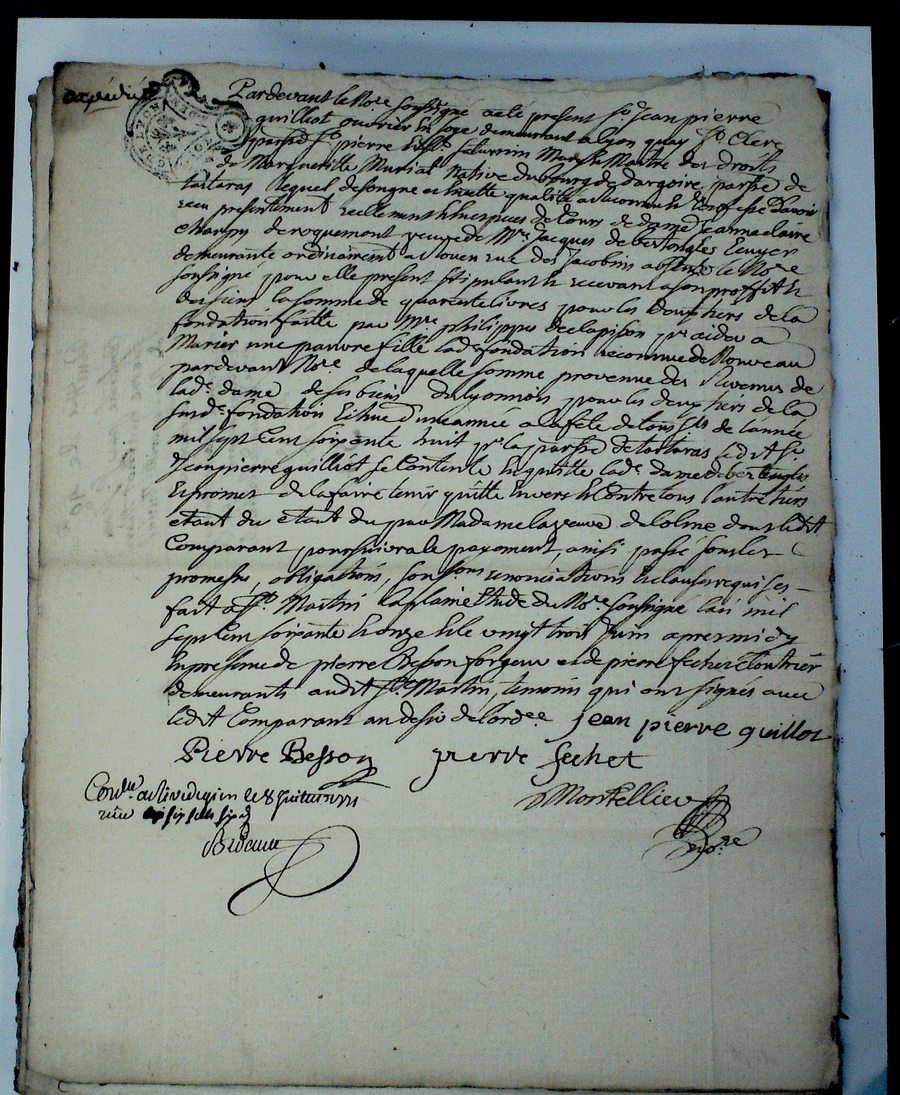 expédié
Pardevant le No.re soussigné a eté present Sr. Jean pierre
quilliot ouvrier en soye demeurant a Lyon quay St. Clere
parsse St. pierre Maitre des droits
de Margueritte Muriat native du bourg de dargoire, parsse de
tartaras lequel de son gré en laditte qualité a reconnu & confessé d'avoir
receu presentement reellement en especes de Cours de dame Jeanne claire
Charpy de roquemont veuve de Mre. Jacques de bertengles Ecuyer
demeurante ordinairement a rouen rue des Jacobins absente le No.re
soussigné pour elle present stipulant & recevant a son proffit &
des siens la somme de quarente livres pour les deux tiers de la
fondation faitte par Mre. philippe de lapipon pr. aider a
Marier une pauvre fille lad. fondation reconnue de Nouveau
pardevant No.re de laquelle somme provenue des Revenus de
lad. dame de ses biens du lyonnois pour les deux tiers de la
susd. fondation Echue d'une année a la fete de tous Sts de l'année
mil sept Cent soixante huit pr. la parsse de tartaras ledit Sr.
Jean pierre quilliot se Contente & quitte lad. dame de bertengles
& promet de la faire tenir quitte envers & Contre tous l'autre tiers
etant du etant du par Madame la veuve de lolme dont ledit
Comparant poursuivra le payement, ainsi passé sous les
promesses, obligations, soumons renonciations & clauses requises
fait a St. Martin la plaine Etude du No.re soussigné l'an mil
sept Cent soixante & onze & le vingt trois Juin apres midy
en presence de pierre Besson forgeur et de pierre fechet Cloutrier
demeurants audit St. Martin, temoins qui ont signés avec
ledit Comparant au desir de l'ord.ce jean pierre quilliot
Pierre Besson pierre fechet
Con.lé a Rivedegien le 8 Juillet 1771 Montellier
receu six sols six d. No.re
Bideau